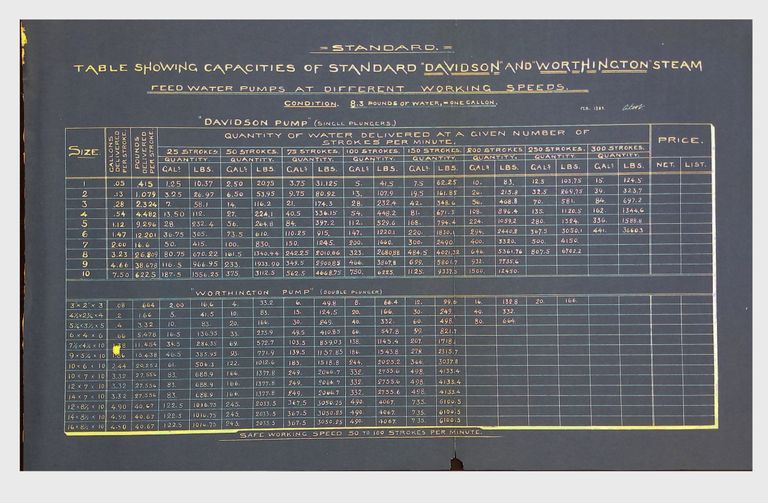 = STANDARD. =
TABLE SHOWING CAPACITIES OF STANDARD "DAVIDSON" AND "WORTHINGTON" STEAM
FEED WATER PUMPS AT DIFFERENT WORKING SPEEDS.
CONDITION. 8.3 POUNDS OF WATER, = ONE GALLON.
"DAVIDSON PUMP" (SINGLE PLUNGERS.)
SIZE. GALLONS DELIVERED PER STROKE. POUNDS DELIVERED PER STROKE. QUANTITY OF WATER DELIVERED AT A GIVEN NUMBER OF STROKES PER MINUTE. PRICE.
25 STROKES. 50 STROKES. 75 STROKES. 100 STROKES. 150 STROKES. 200 STROKES. 250 STROKES. 300 STROKES.
QUANTITY. QUANTITY. QUANTITY. QUANTITY. QUANTITY. QUANTITY. QUANTITY. QUANTITY.
GALS LBS. GALS LBS. GALS LBS. GALS LBS. GALS LBS. GALS LBS. GALS LBS. GALS LBS. NET. LIST.
1 .05 .415 1.25 10.37 2.50 20.75 3.75 31.125 5. 41.5 7.5 62.25 10. 83. 12.5 103.75 15. 124.5
2 .13 1.079 3.25 26.97 6.50 53.95 9.75 80.92 13. 107.9 19.5 161.85 26. 215.8 32.5 269.75 39. 323.7
3 .28 2.324 7. 58.1 14. 116.2 21. 174.3 28. 232.4 42. 348.6 56. 464.8 70. 581. 84. 697.2
4 .54 4.482 13.50 112. 27. 224.1 40.5 336.15 54. 448.2 81. 672.3 108. 896.4 135. 1120.5 162. 1344.6
5 1.12 9.296 28 232.4 56. 464.8 84. 112. 929.6 168.
6 1.47 12.201 36.75 305. 73.5 610. 110.25 915. 147. 1220.1 220. 1830.1 294. 2440.2 367.5 3050.1 441. 3660.3
7 2.00 16.6 50. 415. 100. 830. 150. 1245. 200. 1660. 300. 2490. 400. 3320. 500. 4150.
8 3.23 26.809 80.75 670.22 161.5 1340.44 242.25 2010.66 323. 484.5 646. 807.5
9 4.66 38.678 116.5 966.95 233. 349.5 466. 699. 932.
10 7.50 62.25 187.5 1556.25 375. 3112.5 562.5 4668.75 750. 6225. 1125. 9337.5 1500. 12450.
"WORTHINGTON PUMP" (DOUBLE PLUNGER)
3 × 2 × 3 .08 .664 2.00 16.6 4. 33.2 6. 49.8 8. 66.4 12. 99.6 16. 132.8 20. 166.
4½ × 2¾ × 4 .2 1.66 5. 41.5 10. 83. 15. 124.5 20. 166. 30. 249. 40. 332.
5¼ × 3½ × 5 .4 3.32 10. 83. 20. 166. 30. 249. 40. 332. 60. 498. 80. 664.
6 × 4 × 6 .66 5.478 16.5 136.95 33. 273.9 49.5 410.85 66. 547.8 99. 821.7
7½ × 4½ × 10 11.454 34.5 286.35 69. 572.7 103.5 859.05 138. 1145.4 207. 1718.1
9 × 5¼ × 10 15.438 46.5 385.95 93. 771.9 139.5 1157.85 186. 1543.8 278. 2315.7
10 × 6 × 10 2.44 20.252 61. 506.3 122. 1012.6 183. 1518.8 244. 2025.2 366. 3037.8
10 × 7 × 10 3.32 27.556 83. 688.9 166. 1377.8 249. 2066.7 332. 2755.6 498. 4133.4
12 × 7 × 10 3.32 27.556 83. 688.9 166. 1377.8 249. 2066.7 332. 2755.6 498. 4133.4
14 × 7 × 10 3.32 27.556 83. 688.9 166. 1377.8 249. 2066.7 332. 2755.6 498. 4133.4
12 × 8½ × 10 4.90 40.67 122.5 1016.75 245. 2033.5 367.5 3050.25 490. 4067. 735. 6100.5
14 × 8½ × 10 4.90 40.67 122.5 1016.75 245. 2033.5 367.5 3050.25 490. 4067. 735. 6100.5
16 × 8½ × 10 4.90 40.67 122.5 1016.75 245. 2033.5 367.5 3050.25 490. 4067. 735. 6100.5
SAFE WORKING SPEED 50 TO 100 STROKES PER MINUTE.